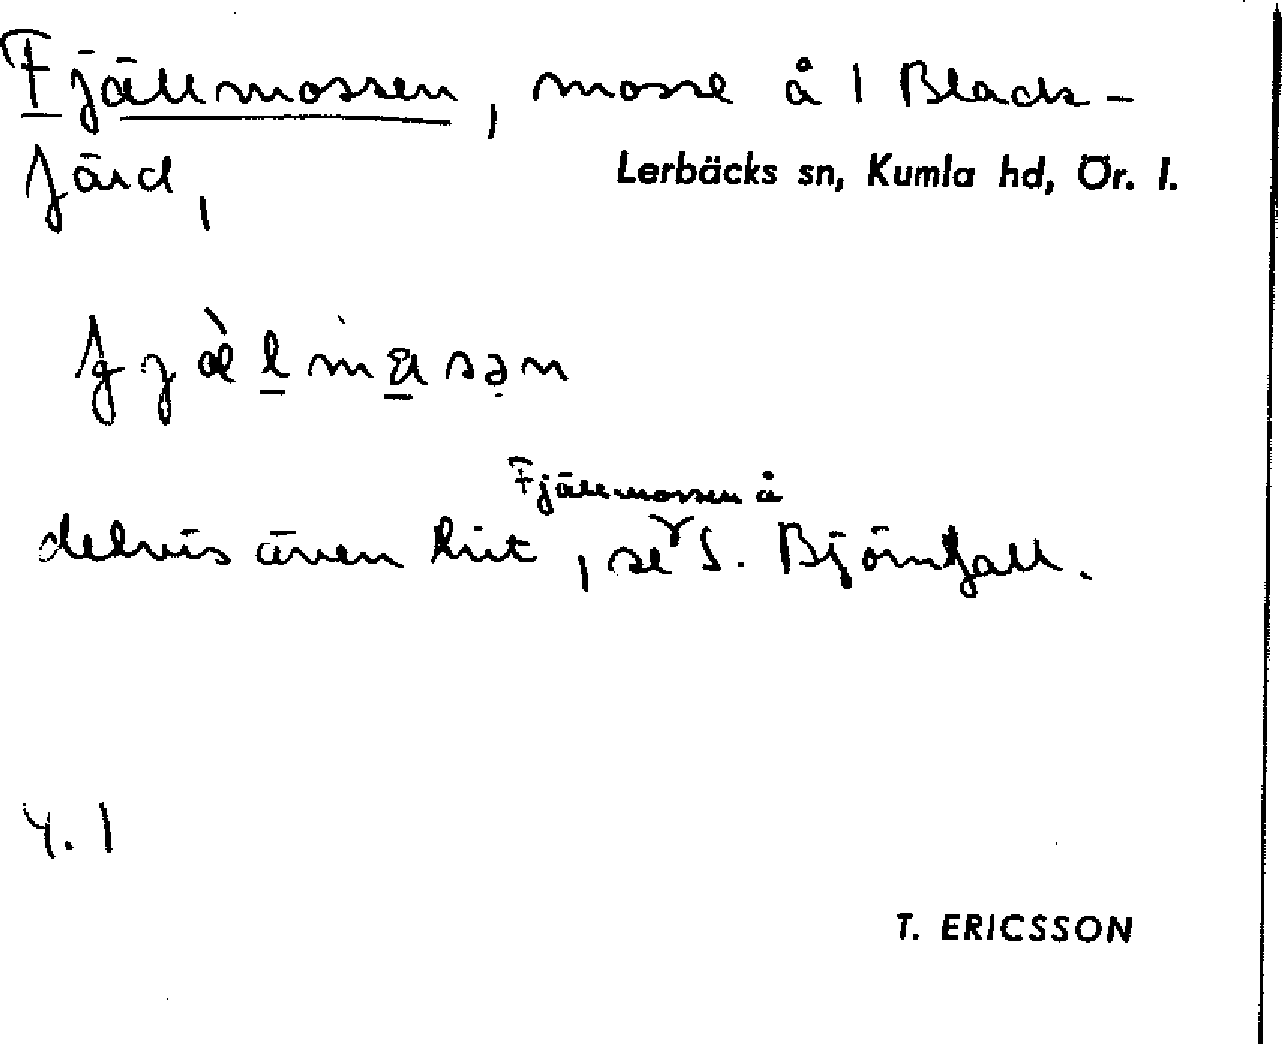 Fjällmossen, mosse å 1 Blacks-
färd,
Lerbäcks sn, Kumla hd, Ör. l.
fjæ̀lmasən
Fjällmossen å
delvis även hit, se S. Björnfall.
4. 1
T. ERICSSON